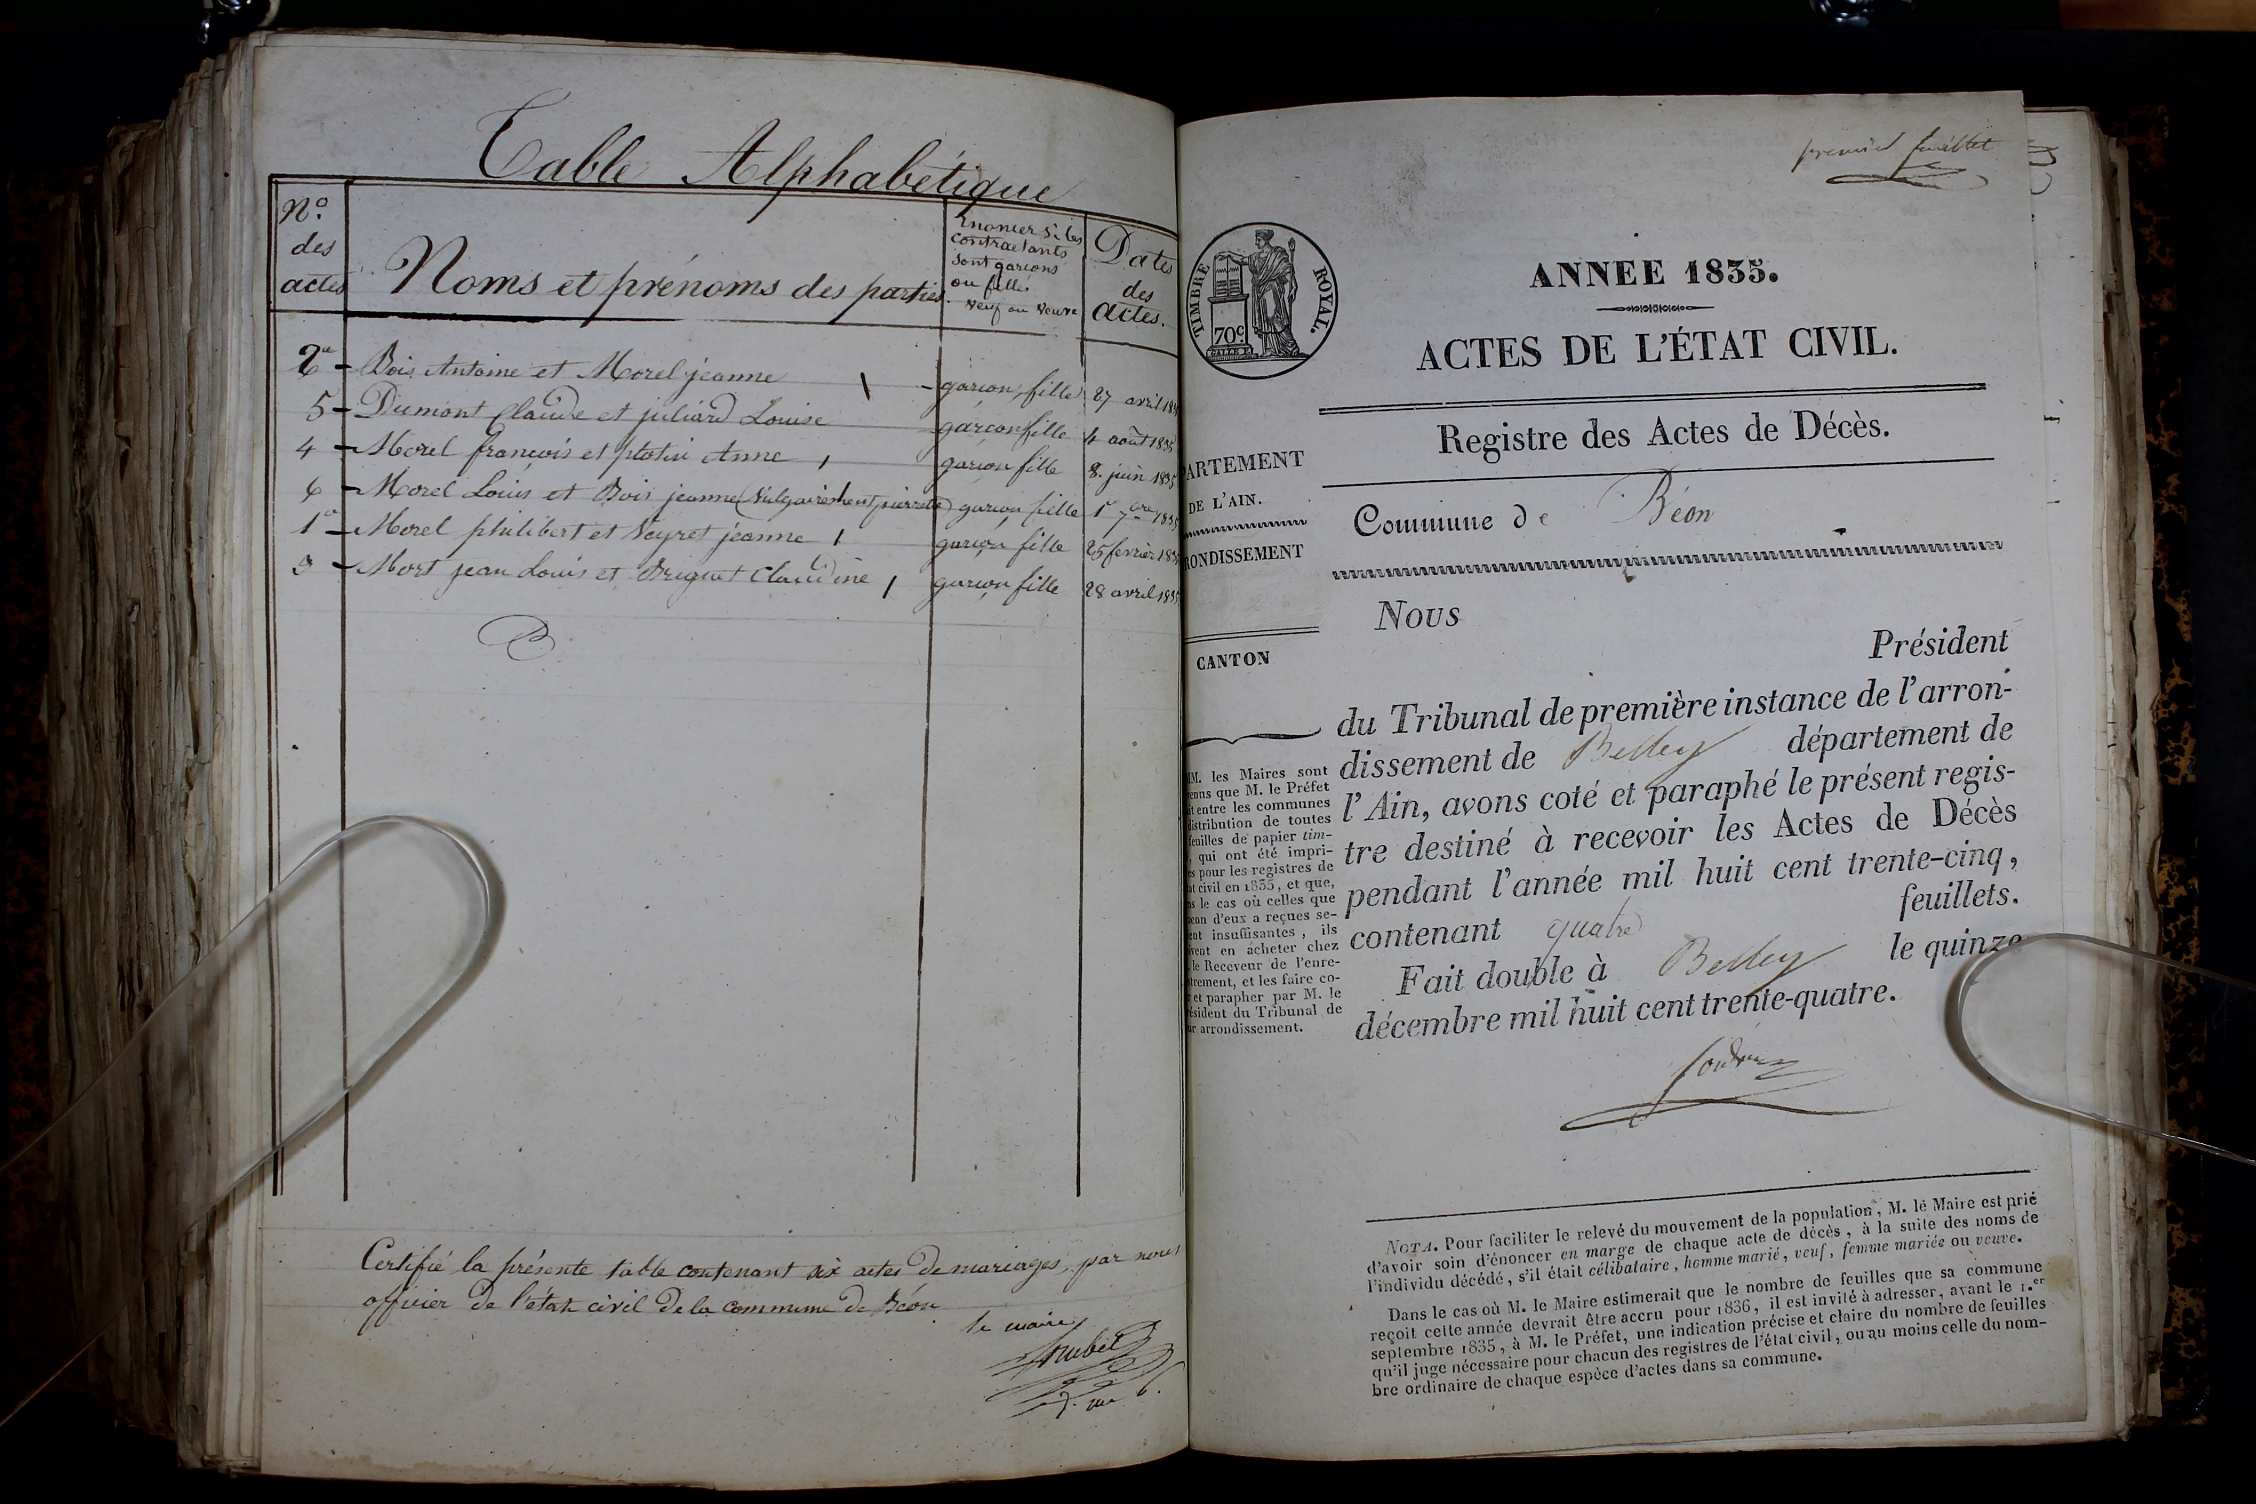 Table Alphabétique
N.o
des
actes
Noms et prénoms des parties
Enoncer si les
contractants
sont garçons
ou filles
veuf ou veuve
Dates
des
actes.
2e Bois Antoine et Morel jeanne garçon, fille 27 avril 183
5 Dumont Claude et juliard Louise garçon fille 4 août 1835
4 Morel françois et platin Anne garçon fille 8. juin 1835
6 Morel Louis et Bois jeanne (vulgairement pierrette) garçon fille 1er 7bre 1835
1e Morel philibert et Veyret jeanne garçon fille 25 fevrier 1835
3 Mort jean Louis et Briquet Claudine garçon fille 28 avril 1835
Certifié la présente table contenant six actes de mariages, par nous
officier de l'état civil de la commune de Béon
le maire
premier feuillet
TIMBRE ROYAL.
70c
ANNEE 1835.
ACTES DE L'ÉTAT CIVIL.
Registre des Actes de Décès.
PARTEMENT
DE L'AIN.
RONDISSEMENT
CANTON
Commune de Béon
Nous
Président
du Tribunal de première instance de l'arron-
dissement de Belley département de
l'Ain, avons coté et paraphé le présent regis-
tre destiné à recevoir les Actes de Décès
pendant l'année mil huit cent trente-cinq,
contenant quatre feuillets.
Fait double à Belley le quinze
décembre mil huit cent trente-quatre.
MM. les Maires sont
enus que M. le Préfet
it entre les communes
distribution de toutes
feuilles de papier tim-
, qui ont été impri-
es pour les registres de
at civil en 1835, et que,
ns le cas où celles que
acun d'eux a reçues se-
ent insuffisantes, ils
ivent en acheter chez
. le Receveur de l'enre-
trement, et les faire co-
r et parapher par M. le
ésident du Tribunal de
ur arrondissement.
NOTA. Pour faciliter le relevé du mouvement de la population, M. le Maire est prié
d'avoir soin d'énoncer en marge de chaque acte de décès, à la suite des noms de
l'individu décédé, s'il était célibataire, homme marié, veuf, femme mariée ou veuve.
Dans le cas où M. le Maire estimerait que le nombre de feuilles que sa commune
reçoit cette année devrait être accru pour 1836, il est invité à adresser, avant le 1.er
septembre 1835, à M. le Préfet, une indication précise et claire du nombre de feuilles
qu'il juge nécessaire pour chacun des registres de l'état civil, ou au moins celle du nom-
bre ordinaire de chaque espèce d'actes dans sa commune.